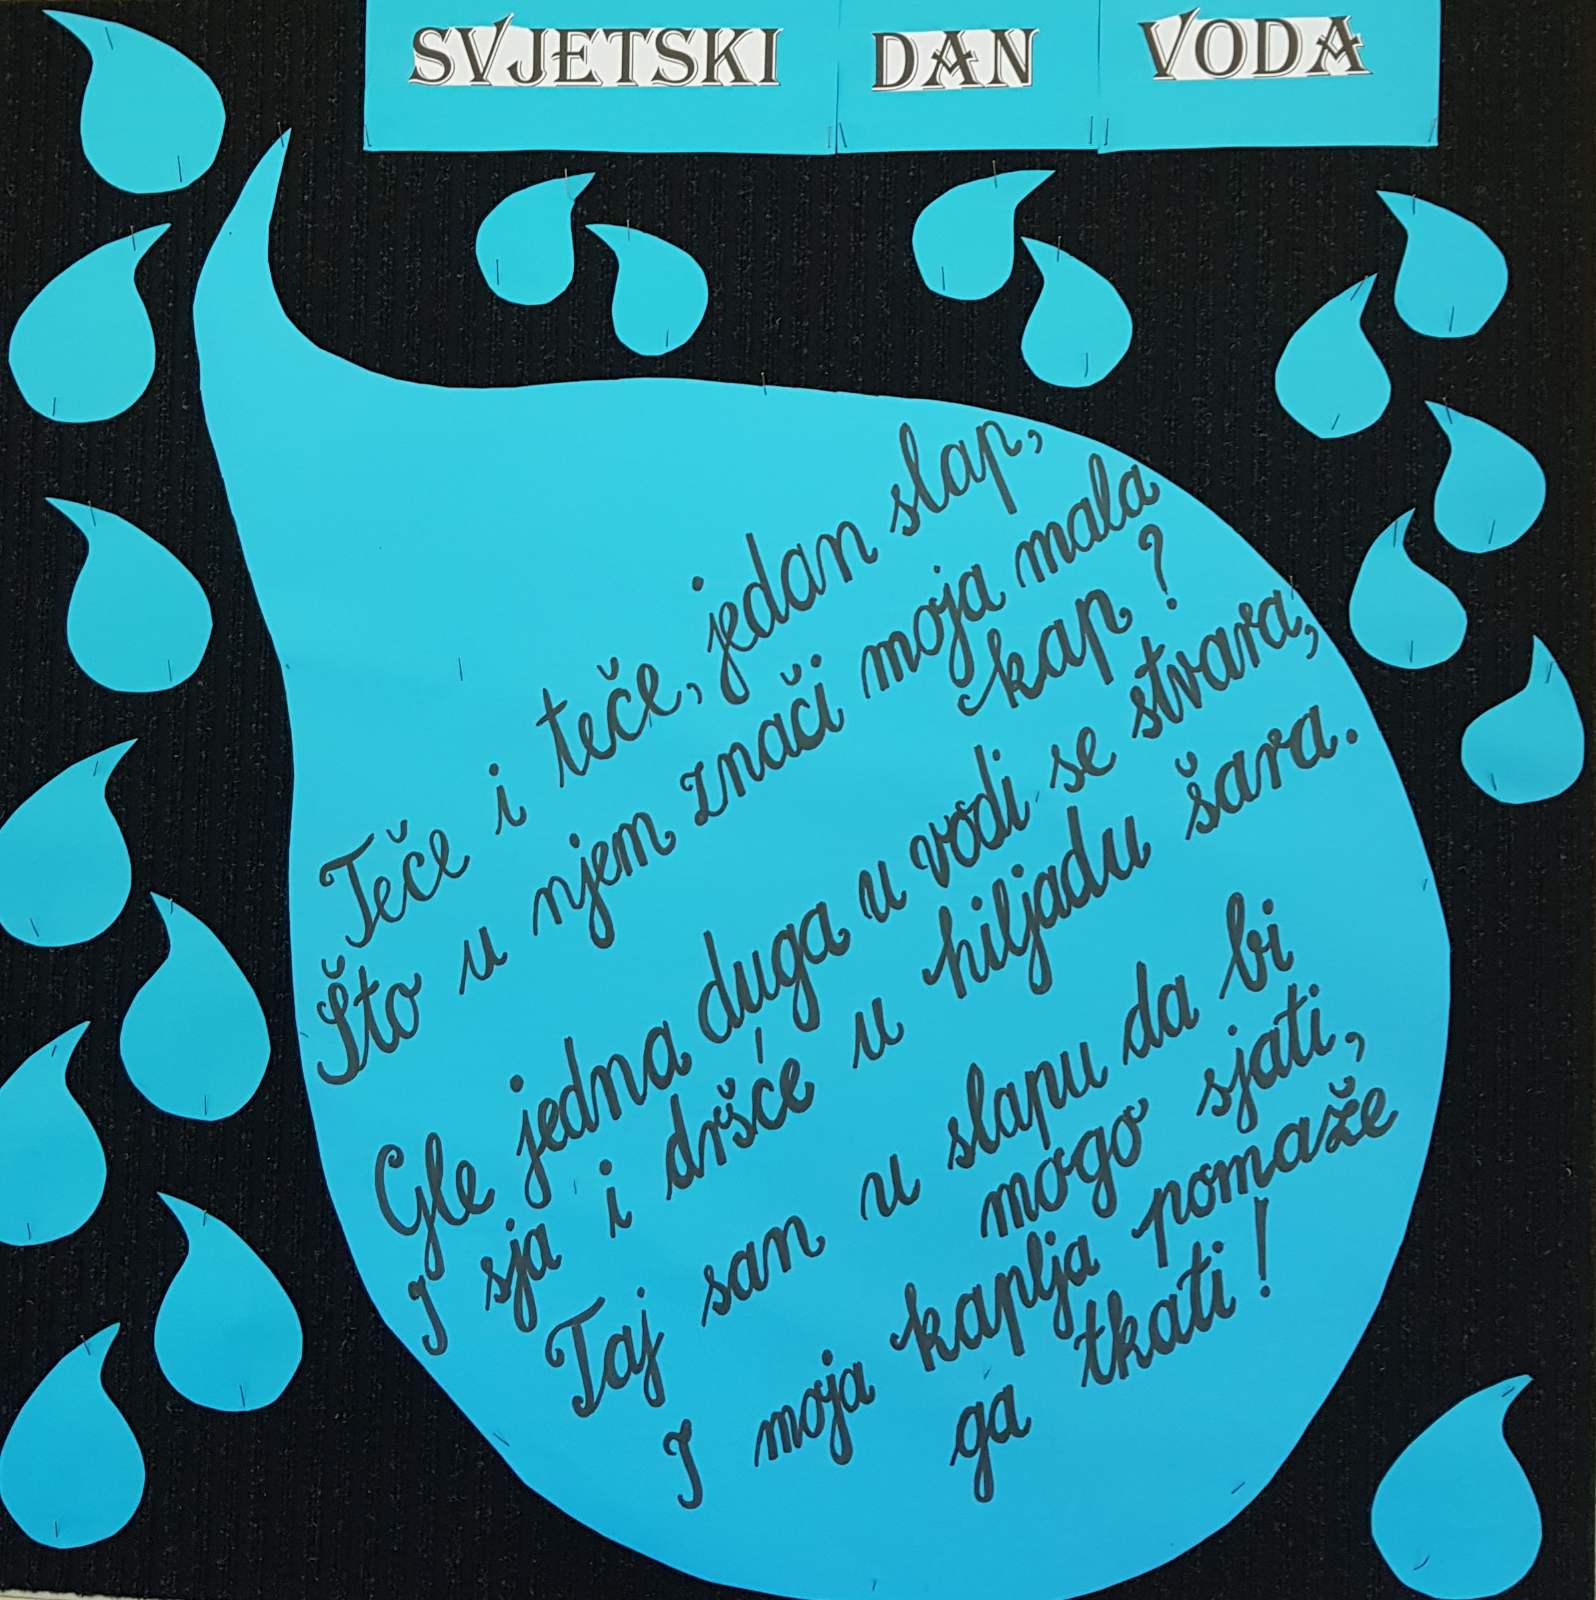 SVJETSKI DAN VODA
Teče i teče, jedan slap,
Što u njem znači moja mala
kap?
Gle jedna duga u vodi se stvara,
I sja i dršće u hiljadu šara.
Taj san u slapu da bi
mogo sjati,
I moja kaplja pomaže
ga tkati!